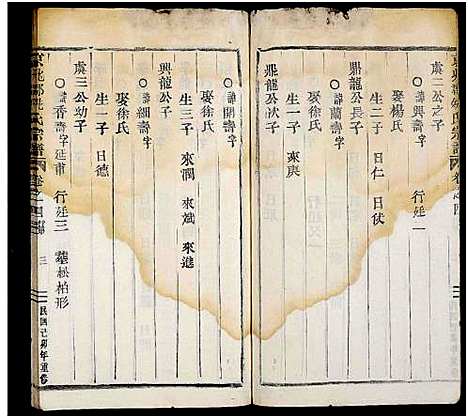 虞二公之子
諱興壽字 行廷一
娶楊氏
生二子 日仁 日伏
鼎龍公長子
諱 壽字
娶徐氏
生一子 來庚
鼎龍公次子
諱開壽字
娶徐氏
生三子 來潤 來斌 來進
興龍公子
諱細壽字
娶徐氏
生一子 日德
虞三公幼子
諱香壽字廷甫 行廷三 墓松柏形
宗譜 卷之四
三
民國己卯年重修